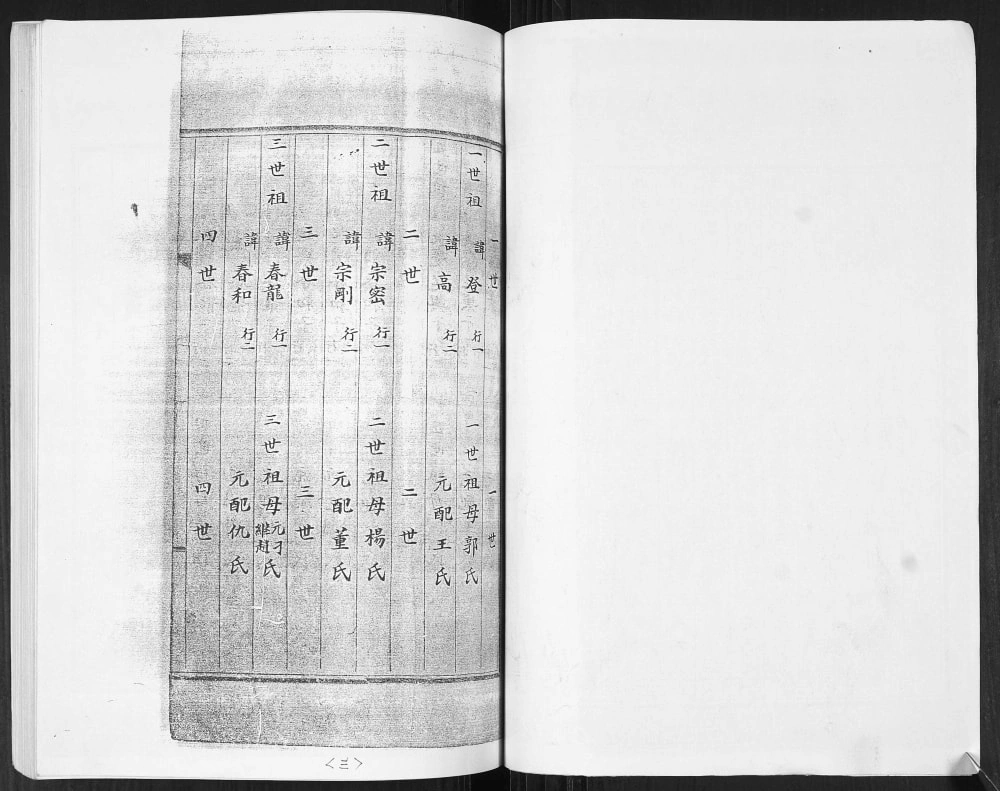 一世 一世
一世祖 諱登 行一 一世祖母郭氏
諱高 行二 元配王氏
二世 二世
二世祖 諱宗密 行一 二世祖母楊氏
諱宗剛 行二 元配董氏
三世 三世
三世祖 諱春龍 行一 三世祖母元刁繼趙氏
諱春和 行二 元配仇氏
四世 四世
<三>